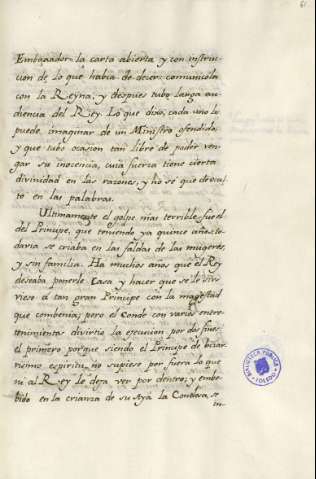 61
Embaxador la carta abierta y con instruc
cion de lo que habia de decer: comunicola
con la Reyna, y despues tubo larga au
diencia del Rey. Lo que dijo, cada uno lo
puede imaginar de un Ministro ofendido,
y que tubo ocasion tan libre de poder ven
gar su inocencia, cuia fuerza tiene cierta
divinidad en las razones, y no sé que
to en las palabras.
Ultimamente el golpe mas terrible fue el
del Principe, que teniendo ya quince años to
daria se criaba en las faldas de las mugeres,
y sin familia. Ha muchos años que el Rey
deseaba ponerle Casa y hacer que se le sir
viese a tan gran Principe con la magestad
que combenia; pero el Conde con varios entre
tenimientos divirtio la execucion por dos fines:
el primero porque siendo el Principe de bizar
risimo espiritu, no supiese por fuera lo que
ni al Rey le deja ver por dentro; y embe
bido en la crianza de su Aya la Condesa, se
in
BIBLIOTECA PUBLICA
TOLEDO